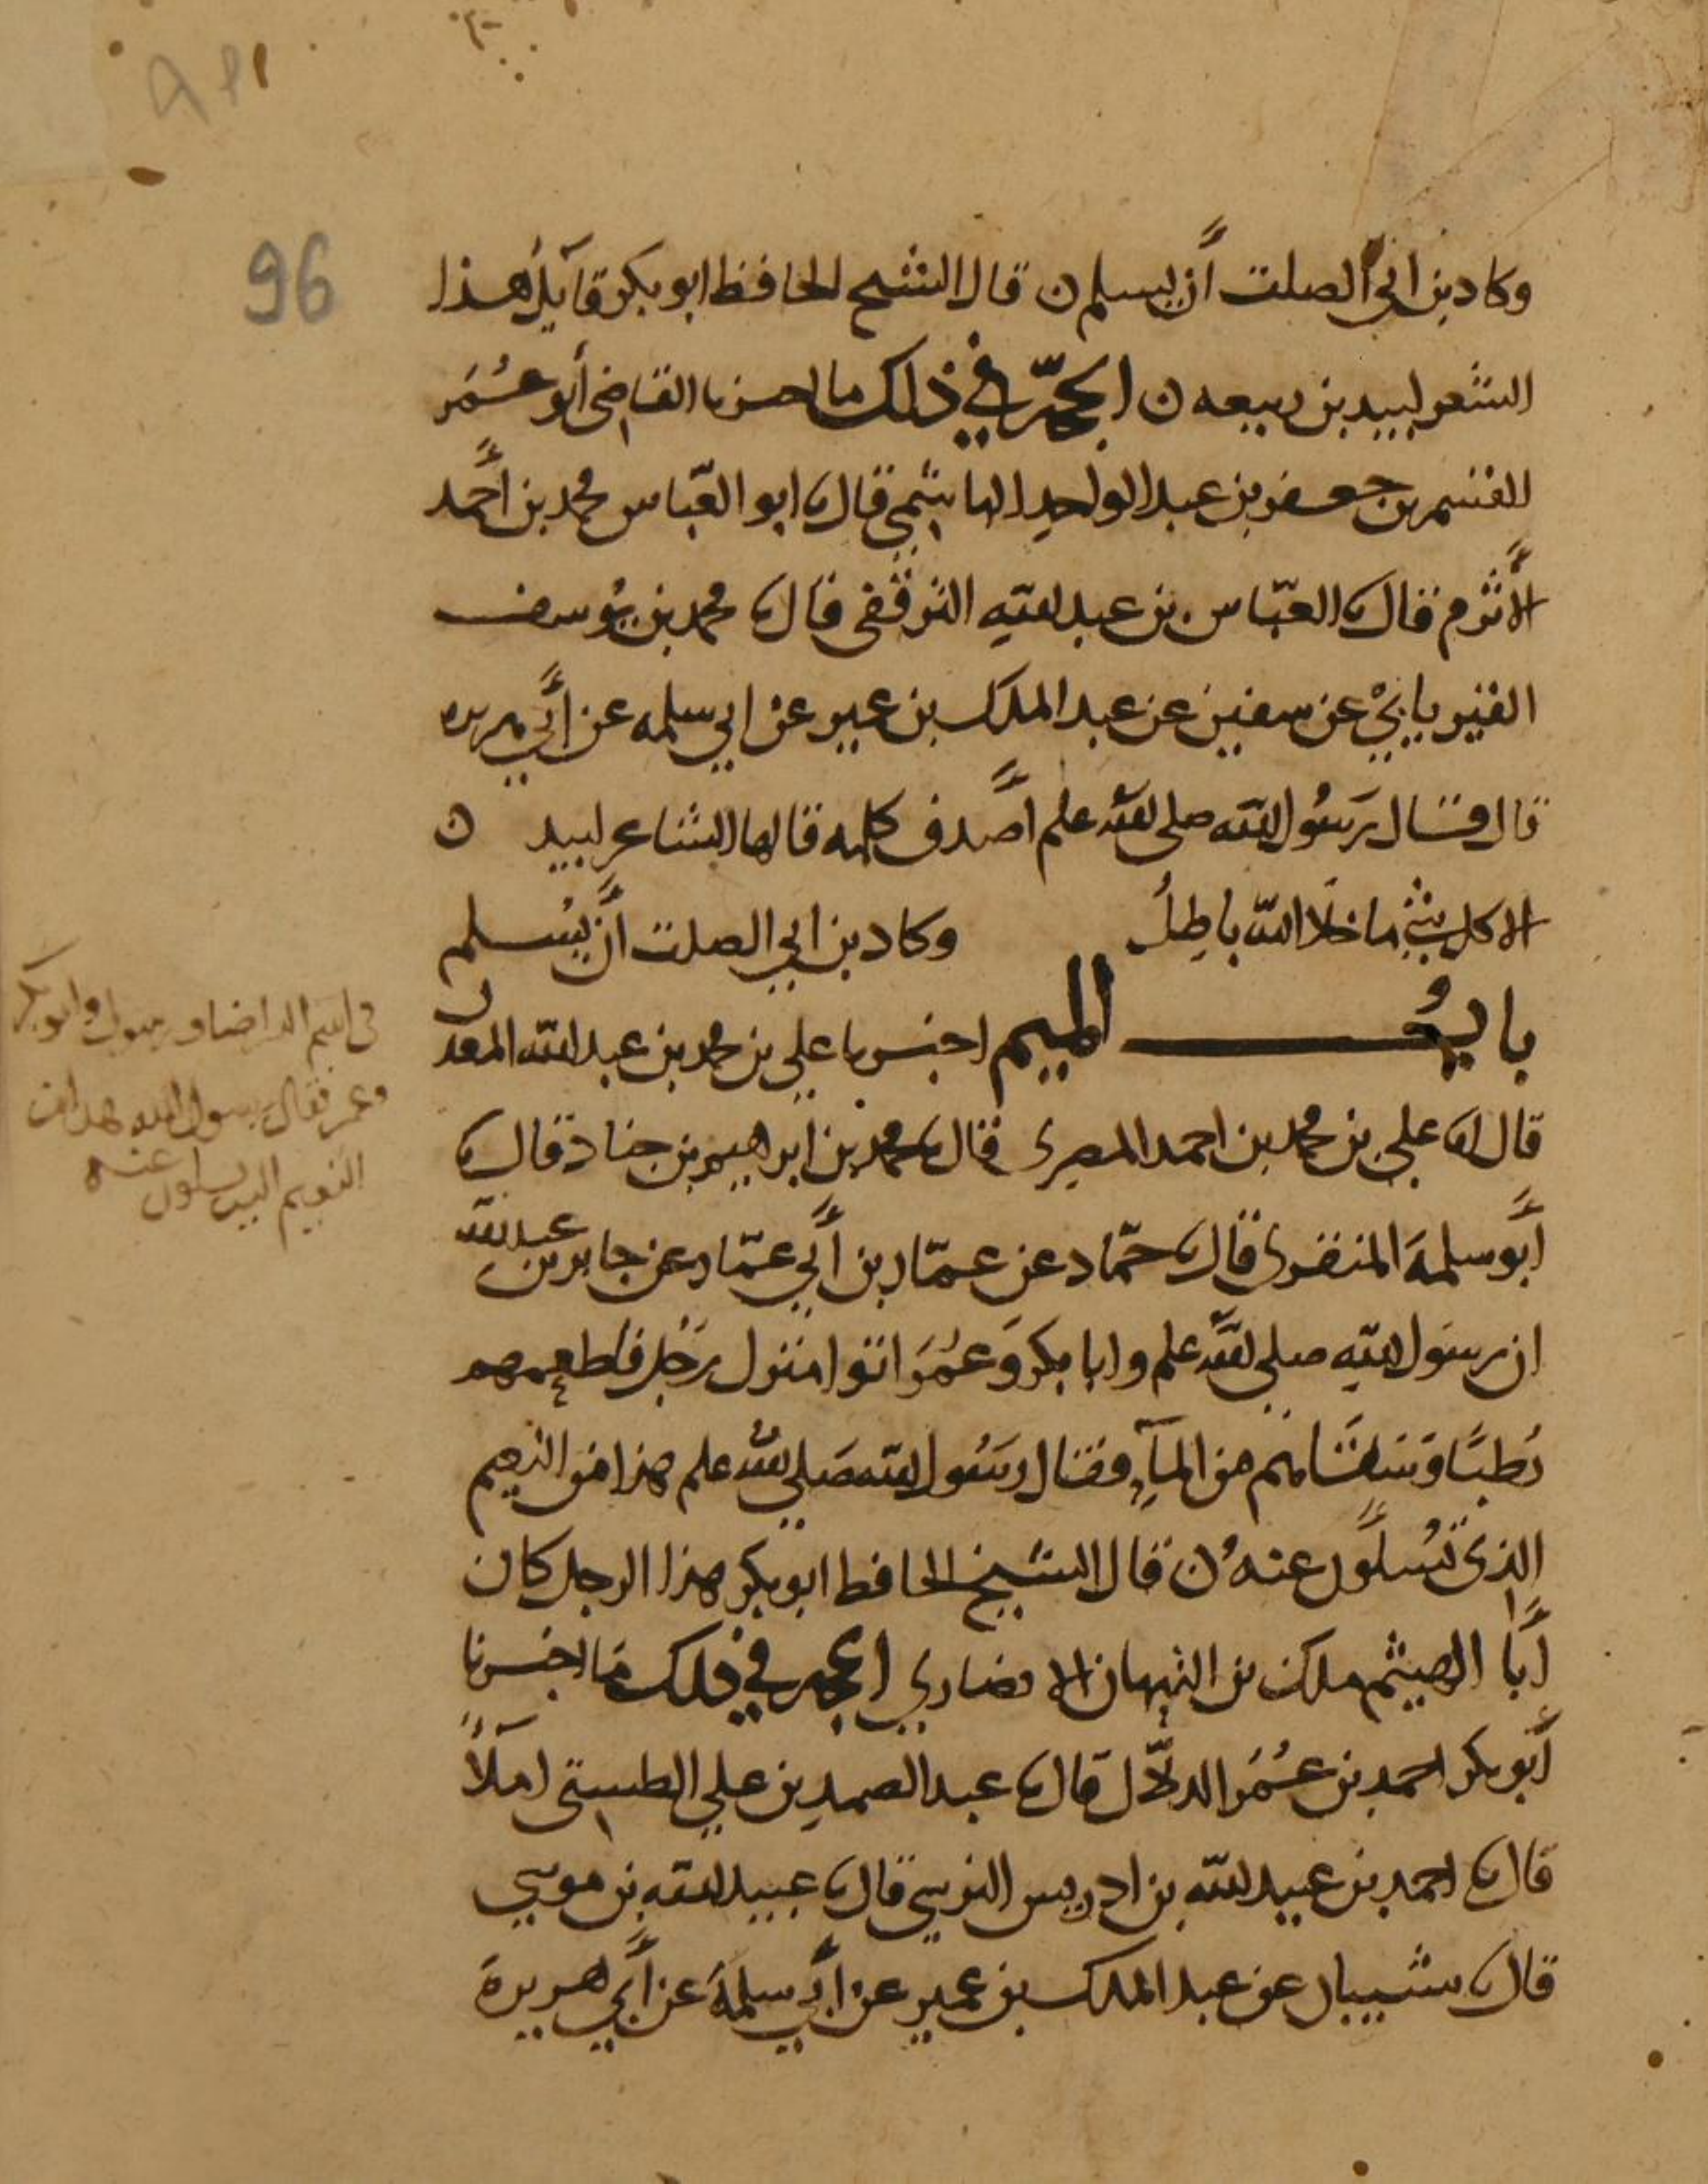 96
وكاد بن ابي الصلت أن يسلم ن قال الشيح الحافظ ابو بكر قايل هذا
الشعر لبيد بن ربيعه ن الحجّة في ذلك ما احبرنا القاضي أبو عُمَر
القسم بن جعفر بن عبد الواحد الهاشمي قال نا ابو العبّاس محمد بن أحمد
الأثرم قال نا العبّاس بن عبد الله الترقفي قال نا محمد بن يُوسف
الفريابي عن سفين عن عبد الملك بن عمير عن ابي سلمه عن أبي هريره
قال قال رَسُول الله صلى الله علم أصدق كلمه قالها الشاعر لبيد ن
الا كل شي ما خلا الله باطِلُ وكاد بن ابي الصلت أن يُسلم
بابُ الميم اخبرنا علي بن محمد بن عبد الله المعدل
قال انا علي بن محمد بن احمد المصري قال نا محمد بن ابرهيم بن جناد قال نا
أبو سلمةَ المنقري قال نا حمّاد عن عمّار بن أبي عمّار عن جابر بن عبد الله
ان رسَول الله صلى الله علم وابا بكر وَعُمَرَ اتوا منزل رَجُل فاطعمهم
رُطبًا وَسَقَاهم من المآءِ فقال رسَُول الله صَلى الله علم هذا من النعيم
الذي تُسلون عنهُ ن قال الشيخ الحافظ ابو بكر هذا الرجل كان
أبا الهيثم ملك بن التيهان الانصاري الحجه في ذلك مَا اخبرنا
أبو بكر احمد بن عُمَر الدلّال قال نا عبد الصمد بن علي الطستي املآءً
قال نا احمد بن عبيد الله بن ادريس النرسي قال نا عبيد الله بن موسي
قال نا شيبان عن عبد الملك بن عمير عن أبي سلمةَ عن أبي هريرةَ
وابو بكر
وعمر فقال رسول الله هذا من
النعيم الذي تسلون عنه